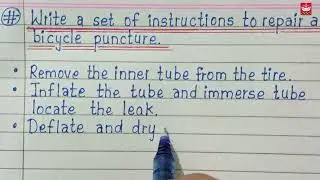 # Write a set of instructions to repair a
bicycle puncture.
• Remove the inner tube from the tire.
• Inflate the tube and immerse tube
locate the leak.
• Deflate and dry